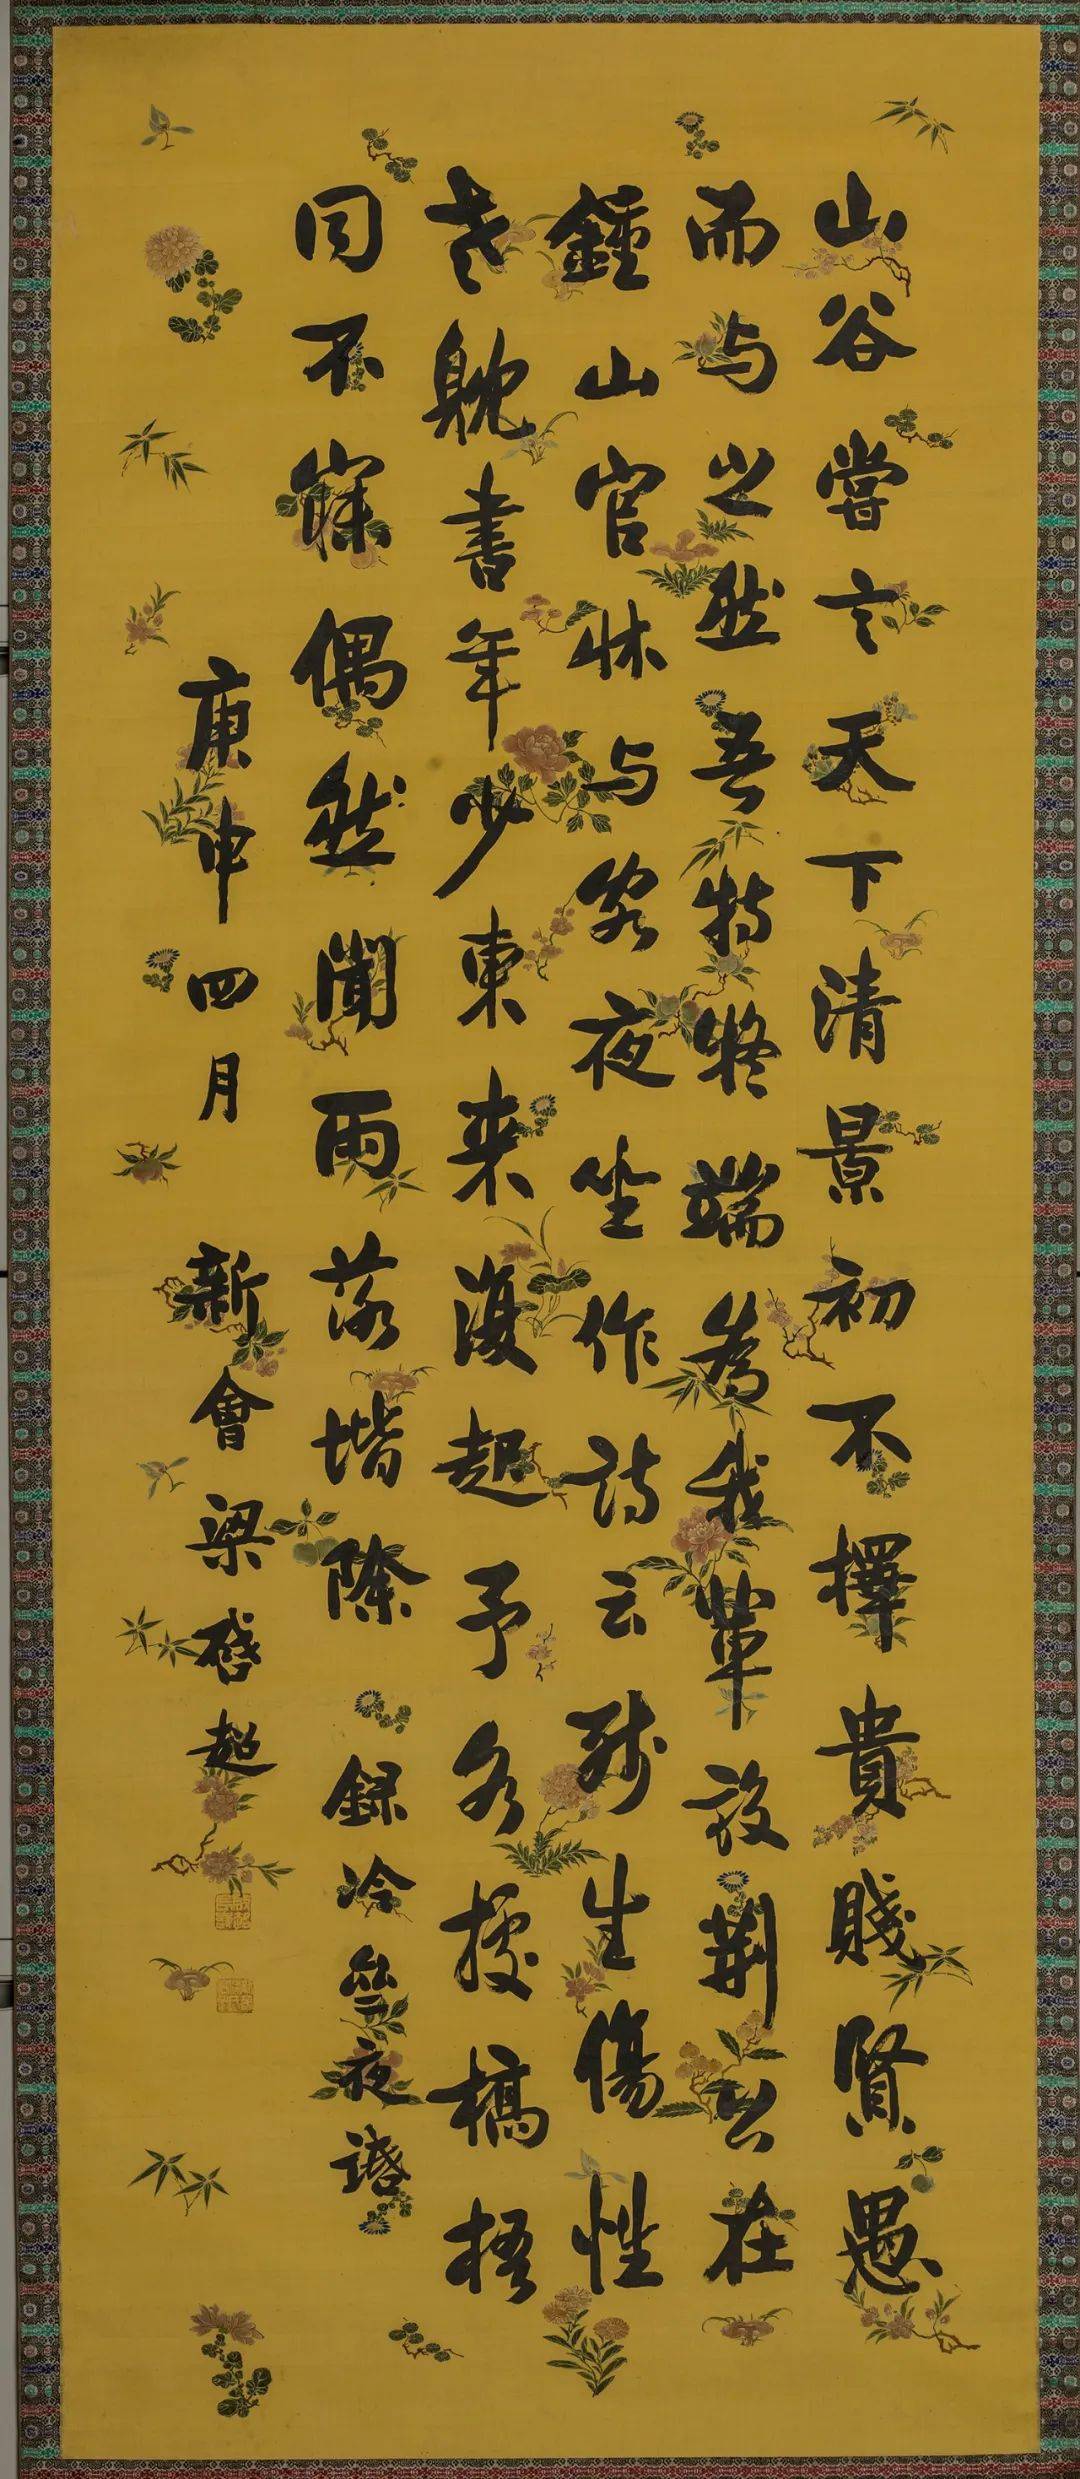 山谷嘗言天下清景初不擇貴賤賢愚
而与之然吾特疑端為我輩設荊公在
鍾山官林与客夜坐作詩云殘生傷性
老躭書年少東来復起予各據槁梧
同不寐偶然聞雨落堦除 録冷齋夜話
庚申四月 新會梁啓超